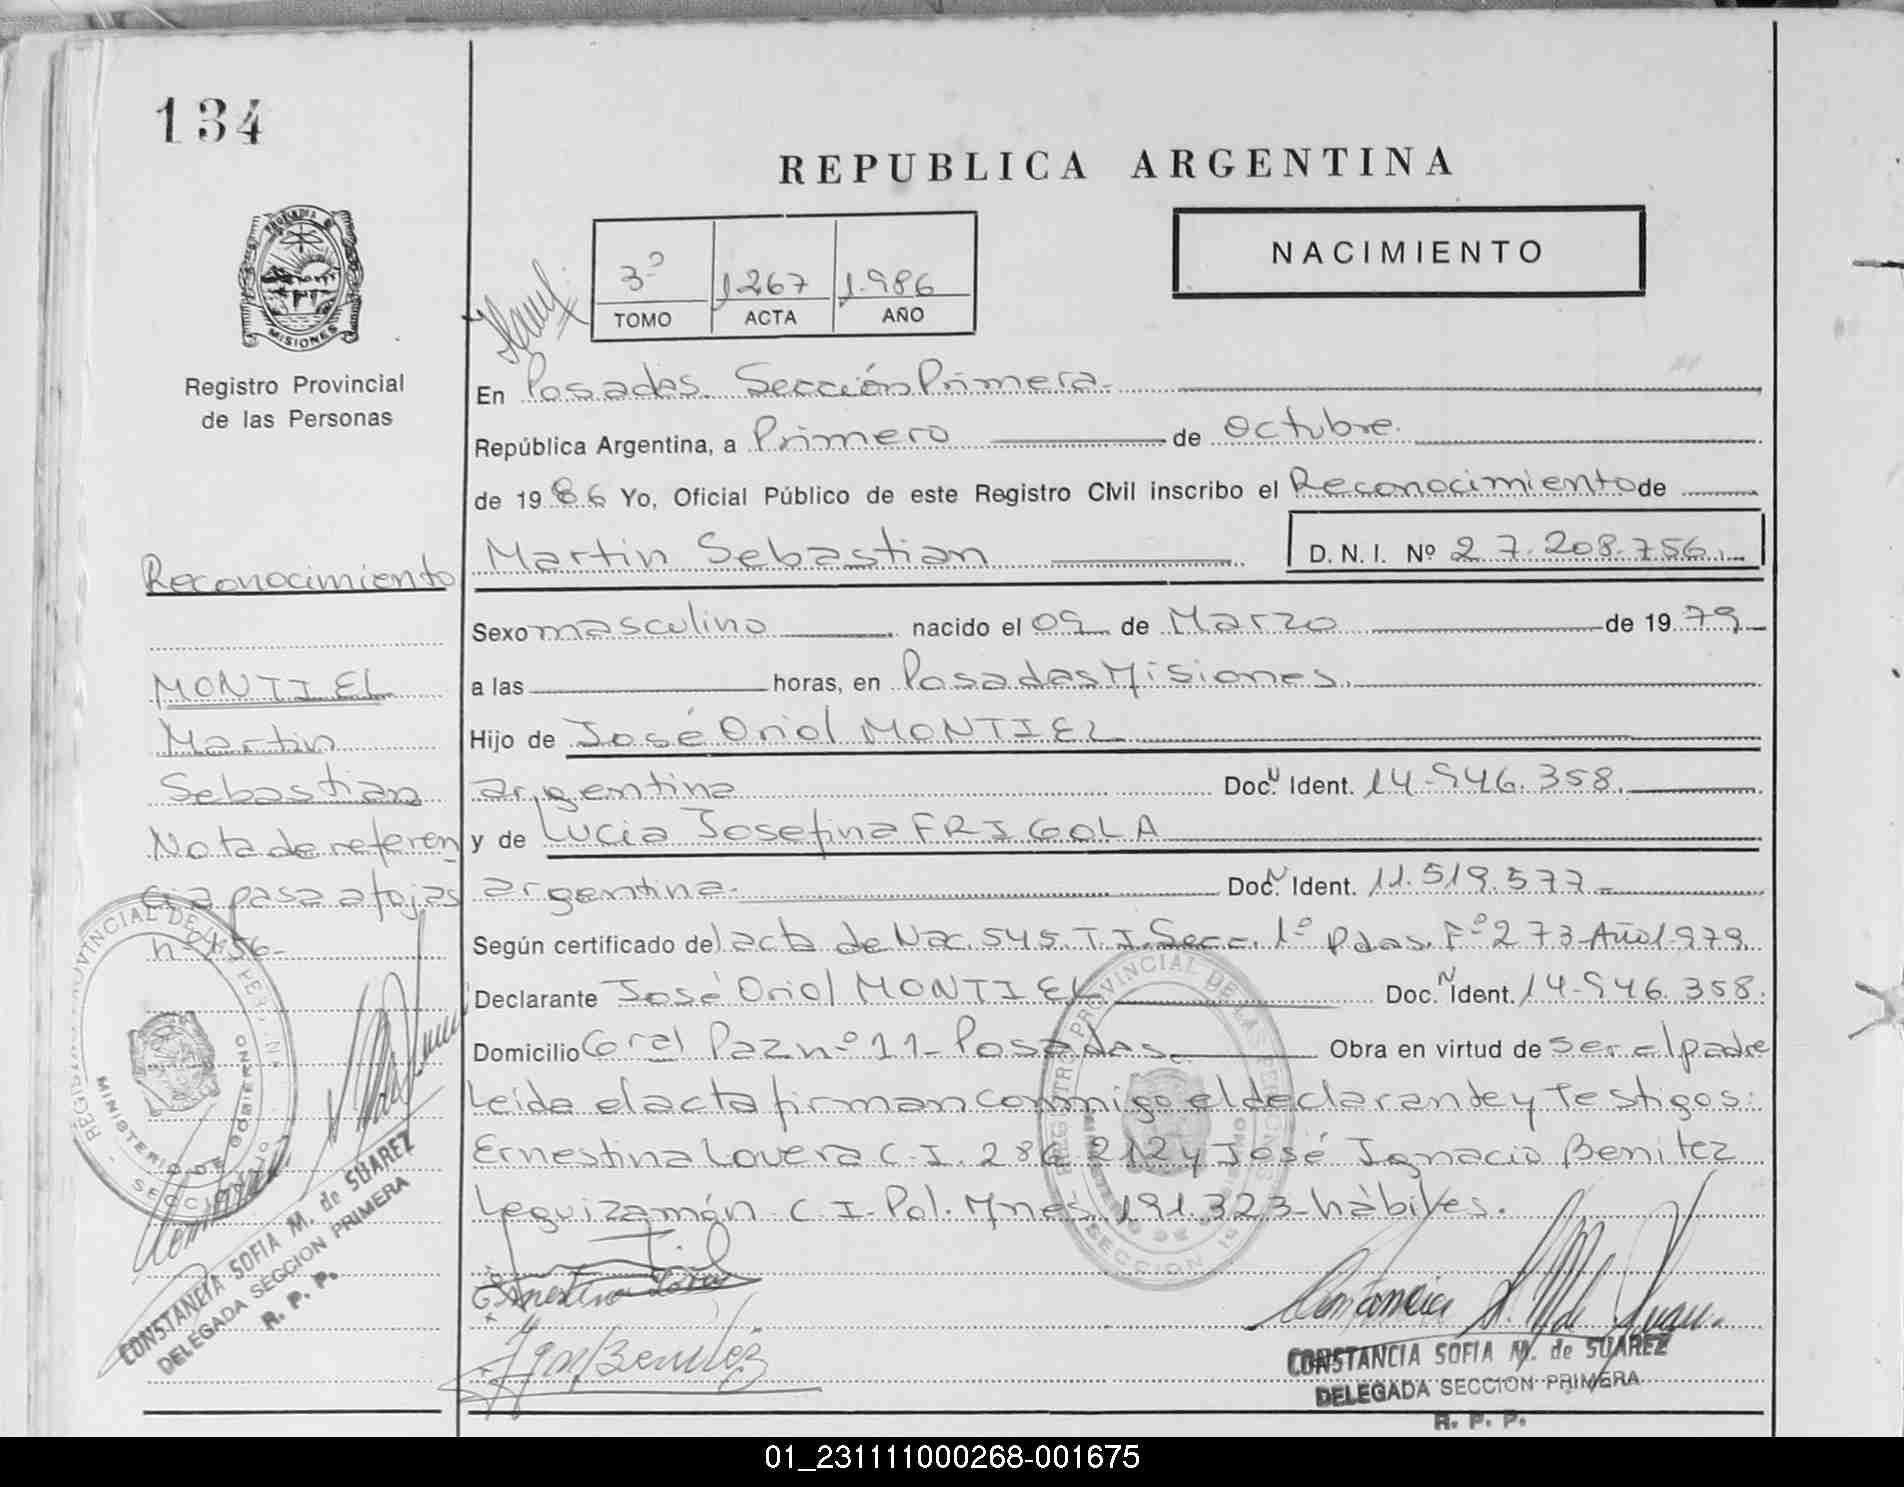 134
REPUBLICA ARGENTINA
NACIMIENTO
3º 1267 1.986
TOMO ACTA AÑO
PROVINCIA DE
MISIONES
Registro Provincial
de las Personas
En Posadas. Sección Primera.
República Argentina, a Primero de Octubre.
de 1986 Yo, Oficial Público de este Registro Civil inscribo el Reconocimiento de
Martin Sebastian D.N.I. Nº 27.208.756.
Sexo masculino nacido el 09 de Marzo de 1979
a las horas, en Posadas Misiones.
Hijo de José Oriol MONTIEL
argentino Doc. N Ident. 14.946.358.
y de Lucia Josefina FRIGOLA
argentina. Doc. N Ident. 11.519.577
Según certificado del acta de Nac. 545 T.I. Secc. 1º Pdas. Fº 273-Año 1.979.
Declarante José Oriol MONTIEL Doc. N Ident. 14.946.358.
Domicilio Gral Paz nº 11 - Posadas Obra en virtud de ser el padre
Leida el acta firman conmigo el declarante y Testigos:
Ernestina Lovera C.I. 286.212 y José Ignacio Benitez
Leguizamón C.I. Pol. Mnes. 191.323 hábiles.
Reconocimiento
MONTIEL
Martin
Sebastian
Nota de referen
cia pasa a fojas
nº 456-
REGISTRO PROVINCIAL DE LAS PERSONAS
MINISTERIO DE GOBIERNO
SECCION 1º
CONSTANCIA SOFIA M. de SUAREZ
DELEGADA SECCION PRIMERA
R. P. P.
REGISTRO PROVINCIAL DE LAS PERSONAS
MINISTERIO DE GOBIERNO
SECCION 1º
Ernestina Lovera
Ign Benitez
Constancia S. M de Suarez
CONSTANCIA SOFIA M. de SUAREZ
DELEGADA SECCION PRIMERA
R. P. P.
01_231111000268-001675